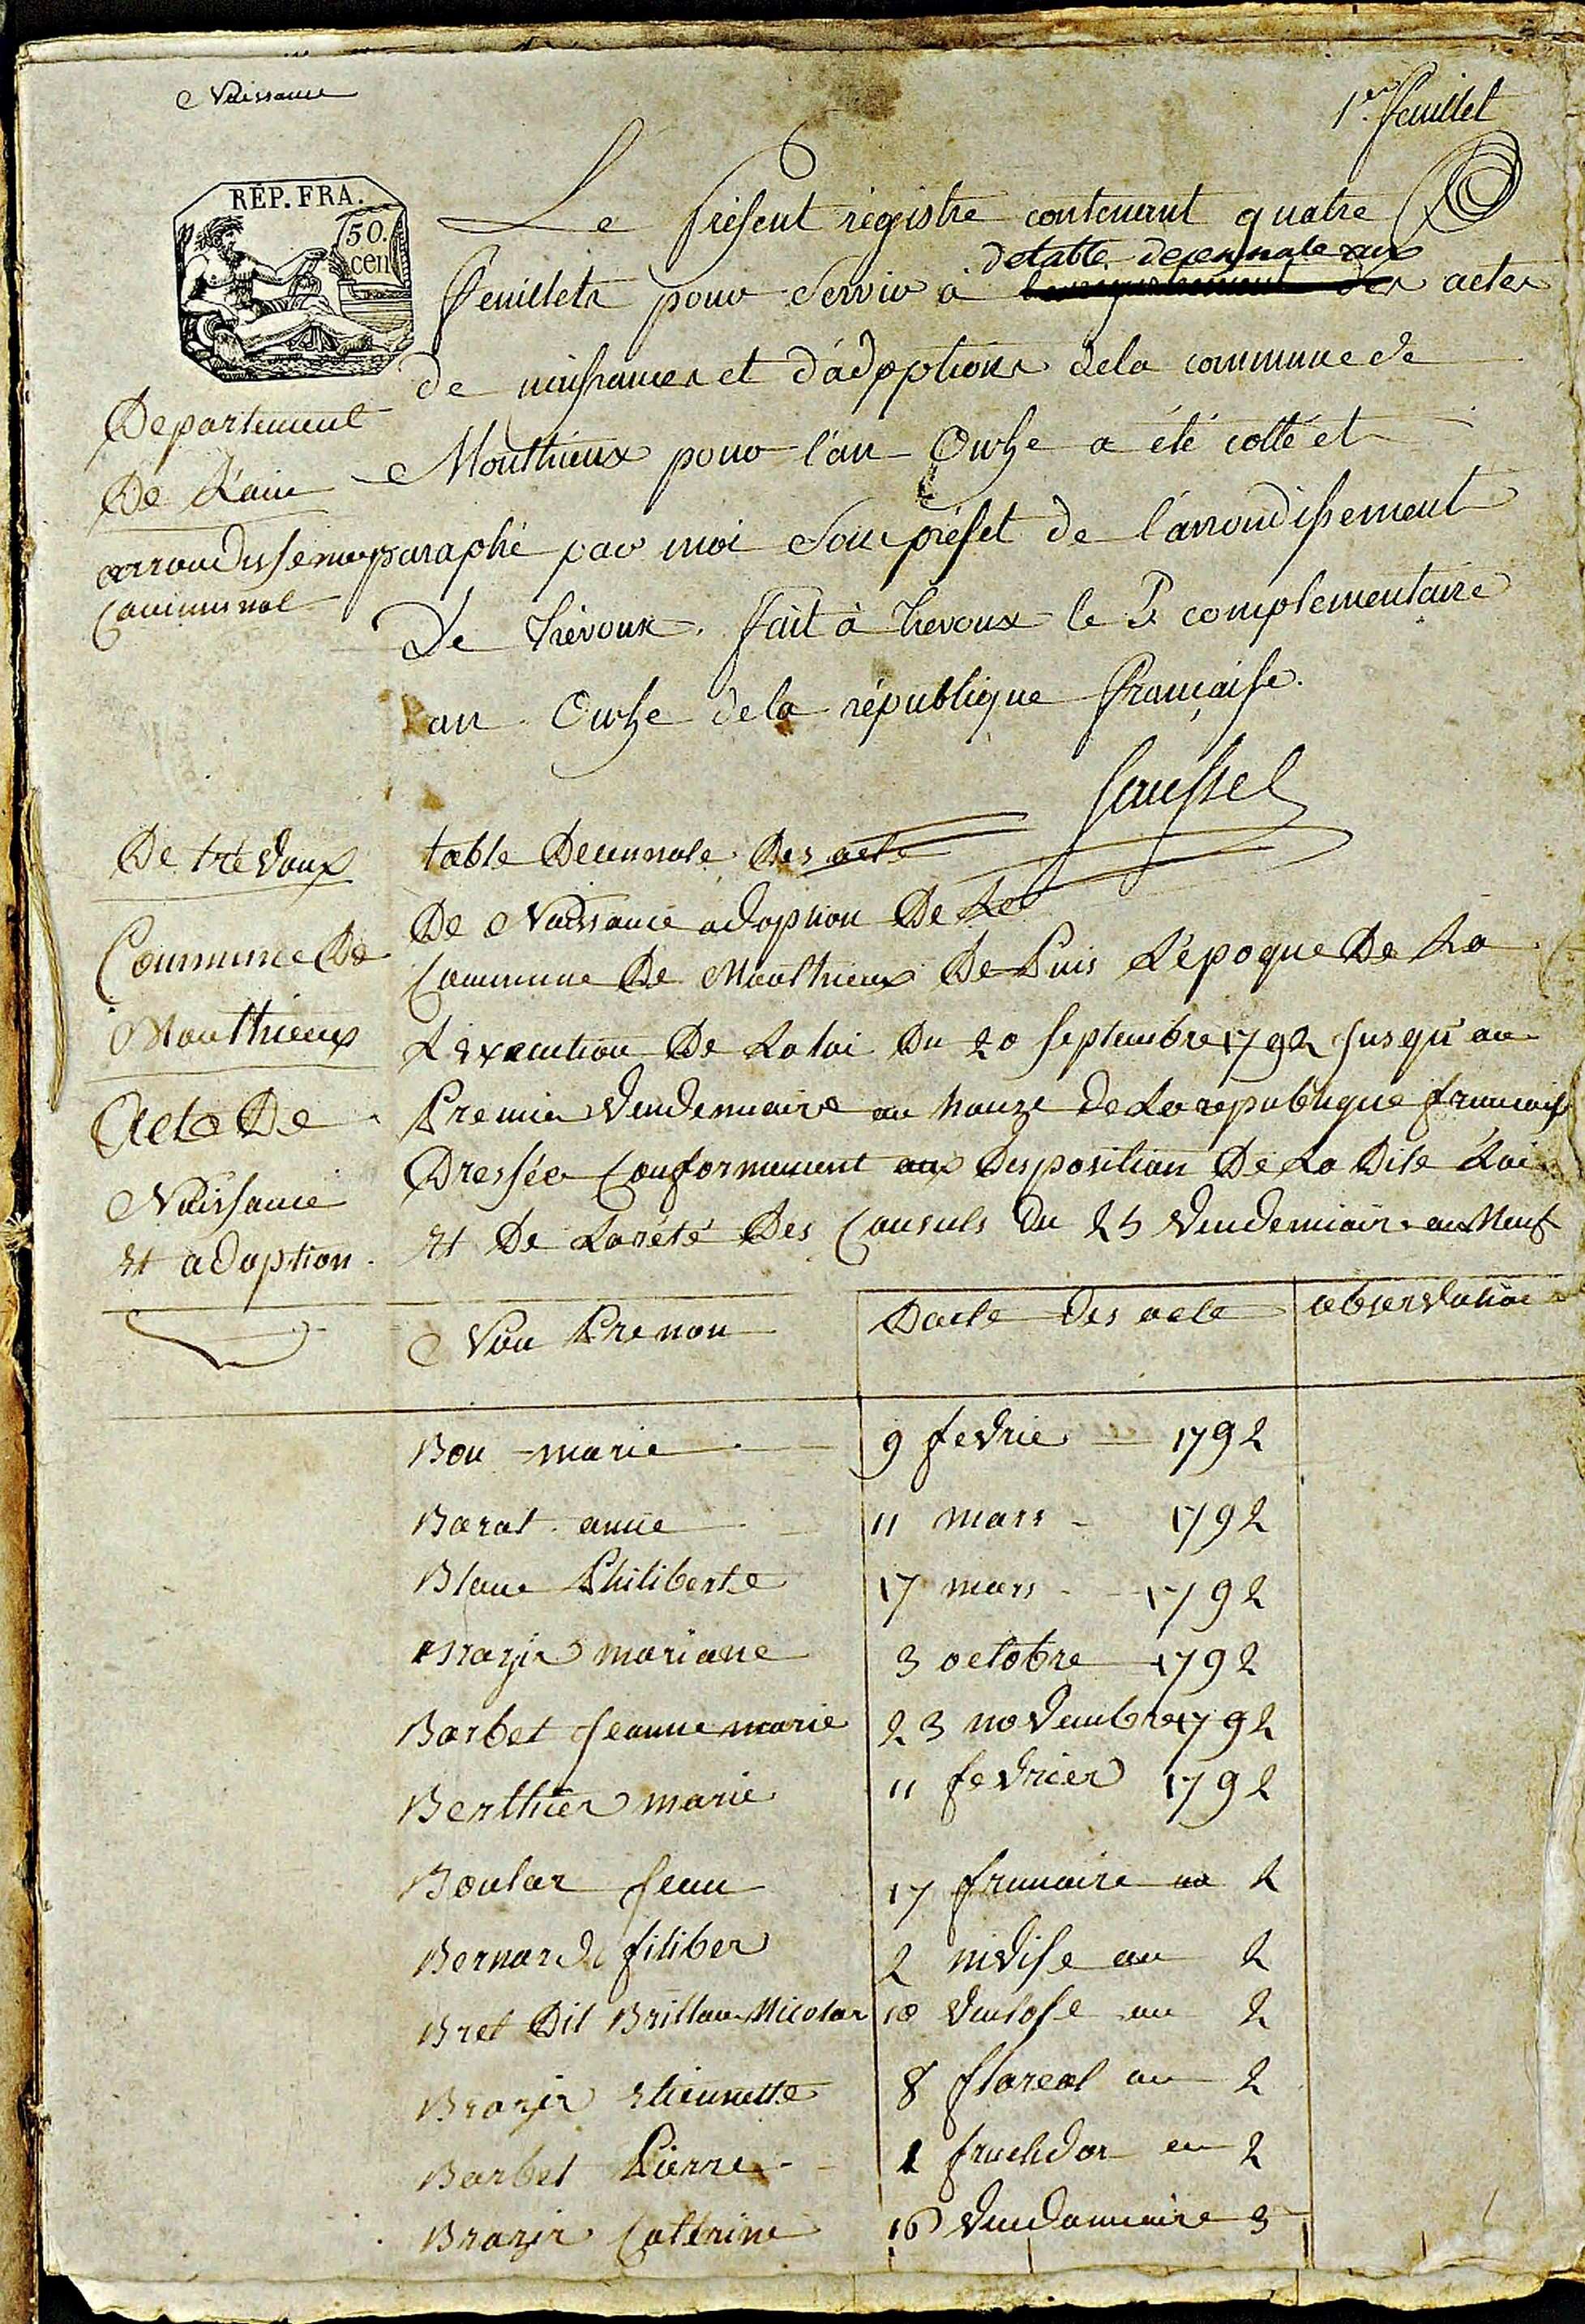 Naissance
1er feuillet
RÉP. FRA.
50.
cen
Le présent régistre contenant quatre
detable decennale aux
feuillets pour servir à actes
de naissances et d'adoptions dela commune de
Monthieux pour l'an Onze a été cotté et
paraphé par moi Sous préfet de l'arrondissement
De Trévoux. fait à Trevoux le 5e complementaire
an Onze dela république française.
Departement
De L'ain
arrondisseme
Communal
De trevoux
Commune De
Monthieux
Acte De
Naissance
Et adoption
table Decennale Des acte
De Naissance adoption De La
Commune De Monthieux De Puis L'époque De La
L'Execution De La loi Du 20 septembre 1792 jusqu'au
Premier Vendemiaire an honze De La republique francais
Dressée Conformement aux Disposition De La Dite Loi
Et De L'arété Des Consuls Du 25 Vendemiair an Neuf
Non Prenon Dacte des acte observation
Bon marie 9 fevrie 1792
Barat anne 11 mars 1792
Blanc Philiberte 17 mars 1792
Brazir mariane 3 octobre 1792
Barbet jeanne marie 23 novembre 1792
Berthier marie 11 fevrier 1792
Boular jean 17 frimaire an 2
Bernard filiber 2 nivise an 2
Bret Dit Brillan Nicolas 10 Ventose an 2
Brazir Etiennette 8 floreal an 2
Barbet Pierre 1 fructidor an 2
Brazir Catterine 16 Vendamiaire 3